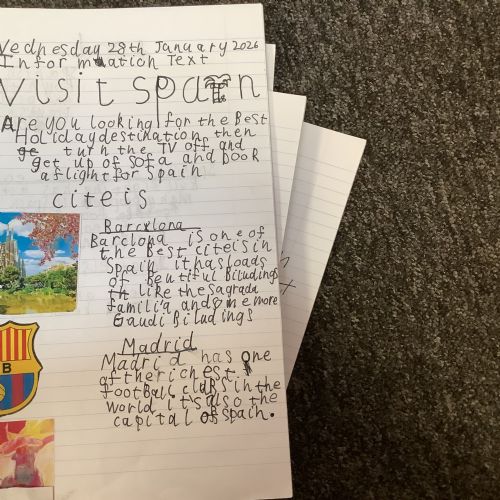 Wednesday 28th January 2026
Information Text
Visit Spain
Are you looking for the Best
Holidaydestination then
turn the TV off and
get up of sofa and book
a flight for Spain
citeis
Barcelona
Barclona is one of
the Best citeis in
Spain it has loads
of beutiful Biludings
like the Sagrada
familia and some more
Gaudi Biludings
Madrid
Madrid has one
of the richest
football clubs in the
world it's also the
capital of spain.
B